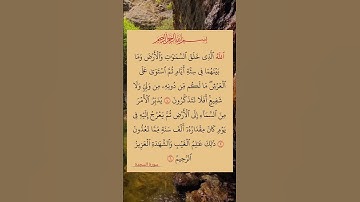 بِسْمِ اللَّهِ الرَّحْمَٰنِ الرَّحِيمِ
ٱللَّهُ ٱلَّذِى خَلَقَ ٱلسَّمَٰوَٰتِ وَٱلْأَرْضَ وَمَا
بَيْنَهُمَا فِى سِتَّةِ أَيَّامٍ ثُمَّ ٱسْتَوَىٰ عَلَى
ٱلْعَرْشِ ۖ مَا لَكُم مِّن دُونِهِۦ مِن وَلِىٍّ وَلَا
شَفِيعٍ ۚ أَفَلَا تَتَذَكَّرُونَ ۝ يُدَبِّرُ ٱلْأَمْرَ
مِنَ ٱلسَّمَآءِ إِلَى ٱلْأَرْضِ ثُمَّ يَعْرُجُ إِلَيْهِ فِى
يَوْمٍ كَانَ مِقْدَارُهُۥٓ أَلْفَ سَنَةٍ مِّمَّا تَعُدُّونَ
۝ ذَٰلِكَ عَٰلِمُ ٱلْغَيْبِ وَٱلشَّهَٰدَةِ ٱلْعَزِيزُ
ٱلرَّحِيمُ ۝
سورة السجدة